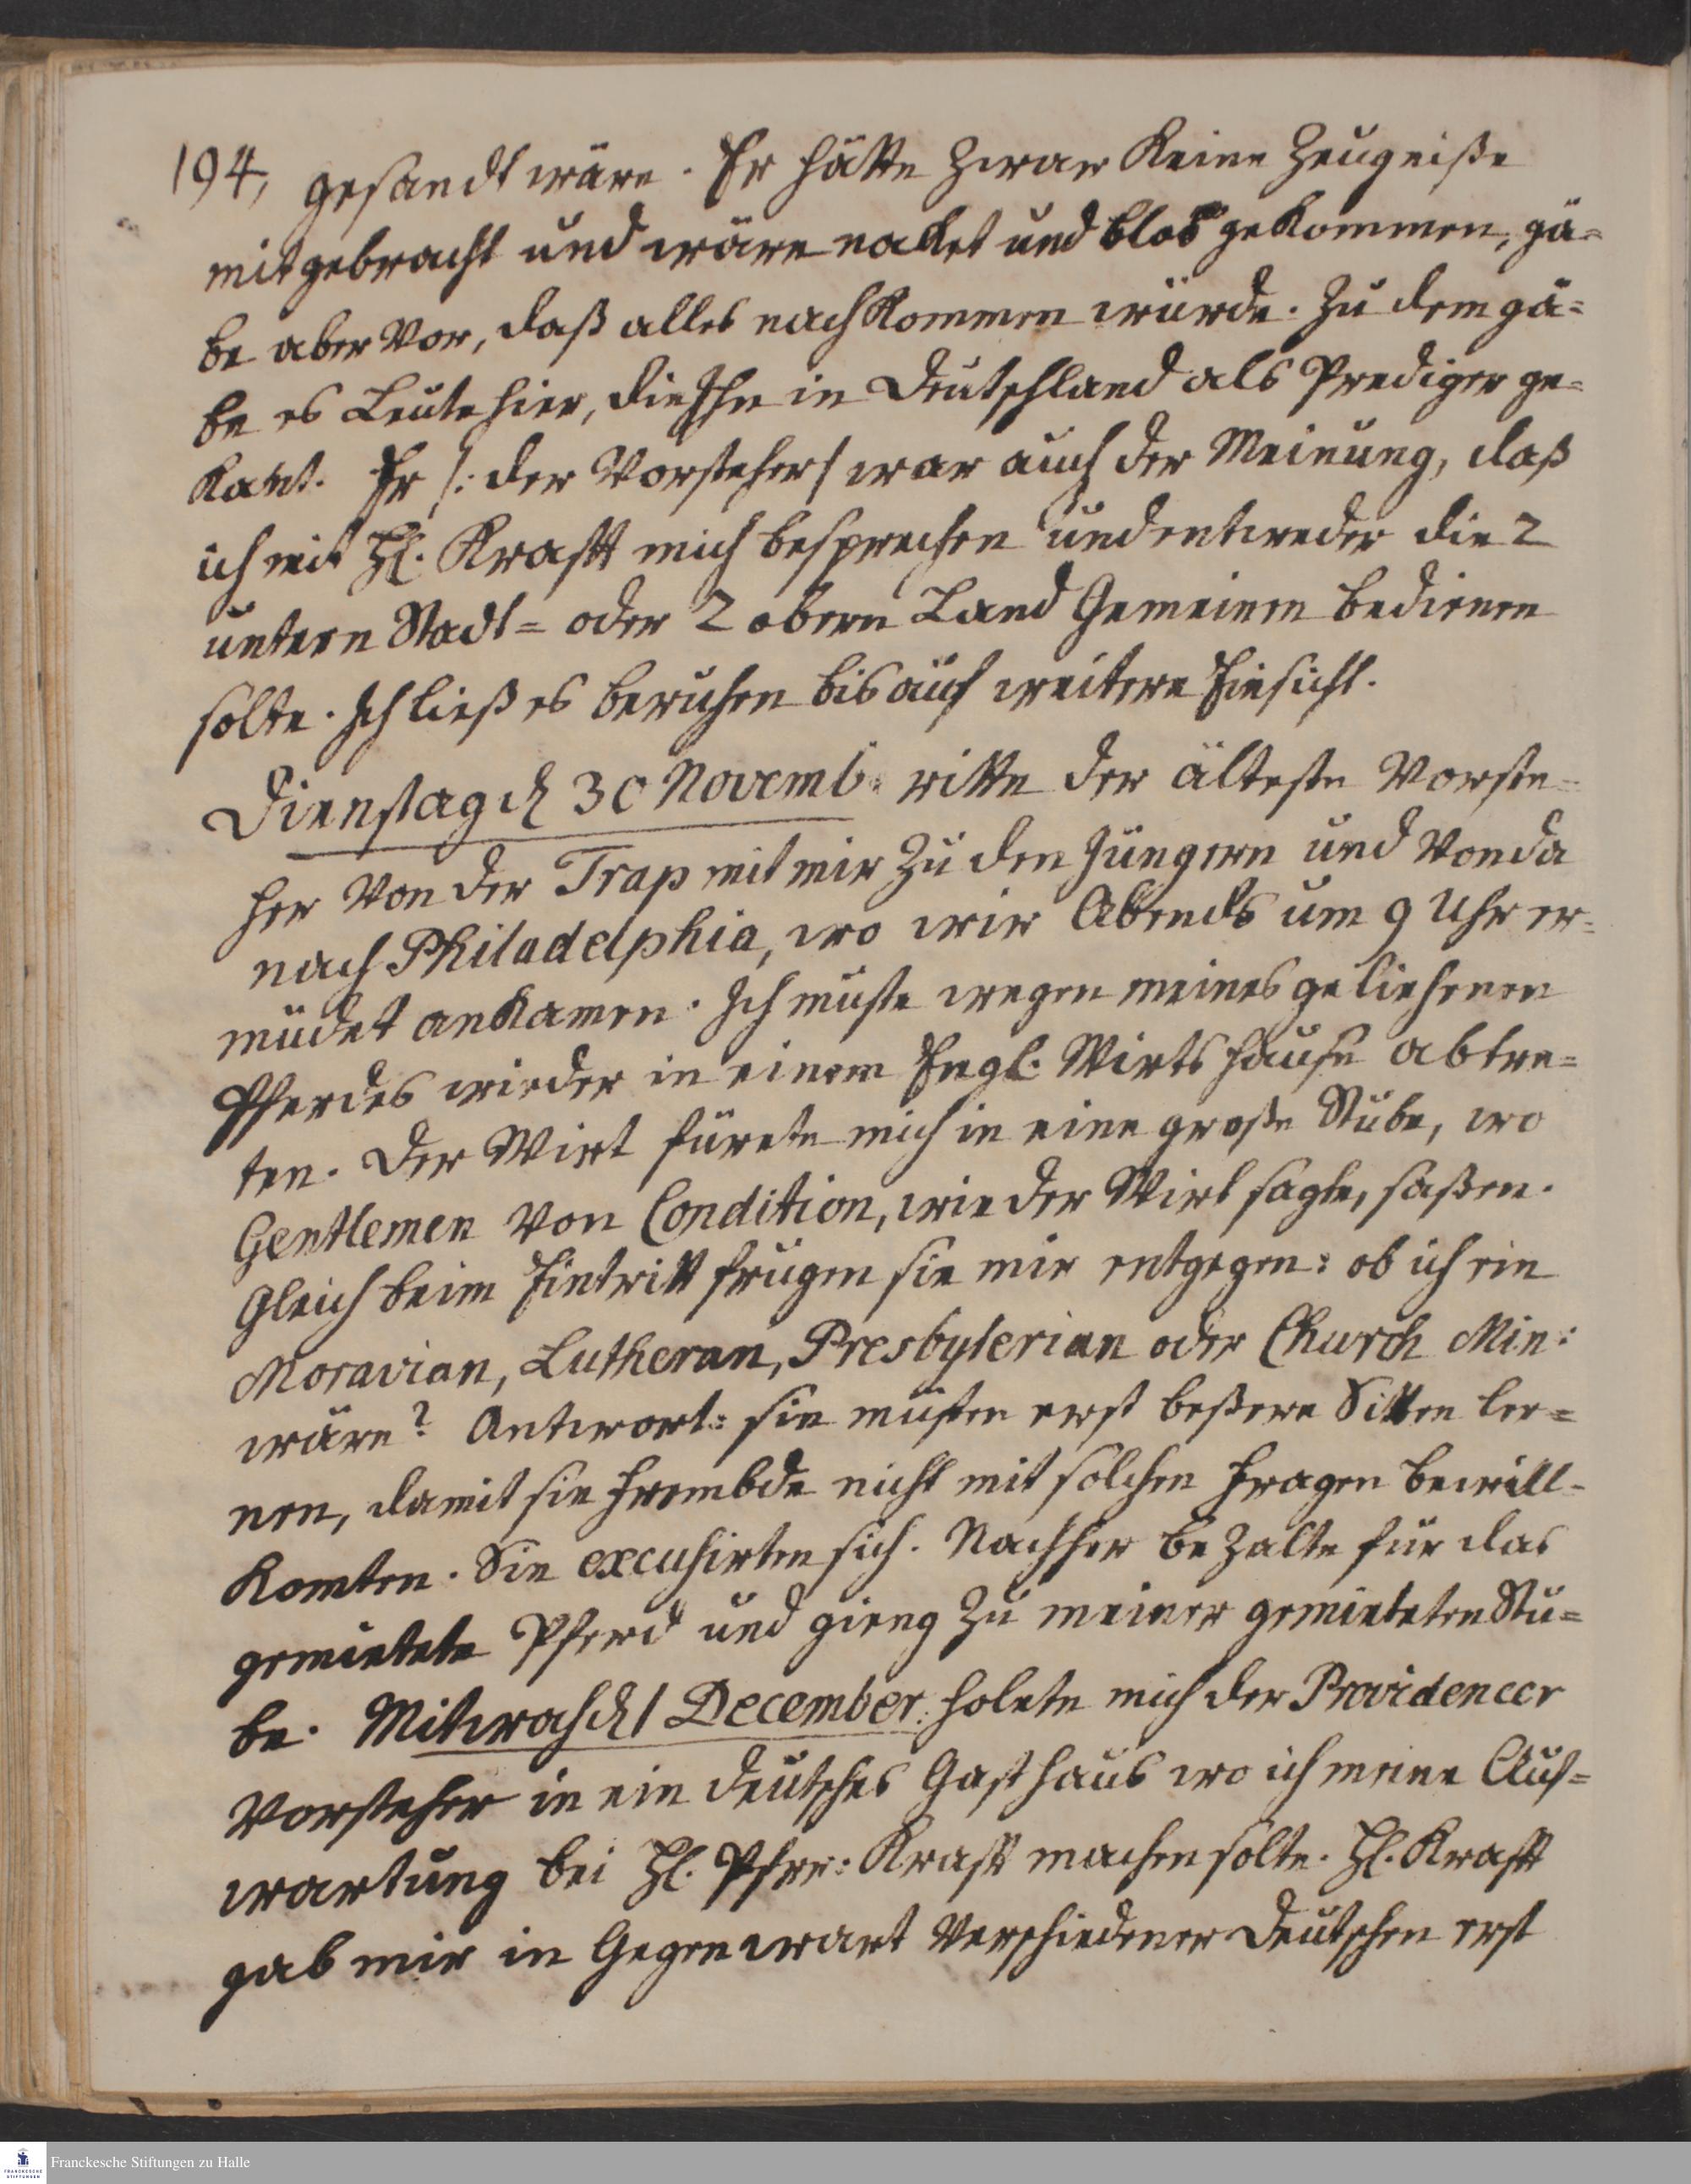 194, gesandt wäre. Er hätte zwar keine Zeugniße
mitgebracht und wäre nacket und blos gekommen, gä=
be aber vor, daß alles nachkommen würde. Zu dem gä=
be es Leute hier, die Ihn in Deutschland als Prediger ge=
kant. Er /: der Vorsteher/ war auch der Meinung, daß
ich mit H. Krafft mich besprechen und entweder die 2
untern Stadt= oder 2 obern Land Gemeinen bedienen
solte. Ich ließ es beruhen bis auf weitere Einsicht.
Dienstag d 30 Novemb. ritte der älteste Vorste=
her von der Trap mit mir zu den Jüngern und von da
nach Philadelphia, wo wir Abends um 9 Uhr er=
müdet ankamen. Ich muste wegen meines geliehenen
Pferdes wieder in einem Engl. Wirtshause abtre=
ten. Der Wirt fürete mich in eine große Stube, wo
Gentlemen von Condition, wie der Wirt sagte, saßen.
Gleich beim Eintritt frugen sie mir entgegen: ob ich ein
Moravian, Lutheran, Presbyterian oder Church Min:
wäre? Antwort: sie müsten erst beßere Sitten ler=
nen, damit sie Frembde nicht mit solchen Fragen bewill=
komten. Sie excusirten sich. Nachher bezalte für das
gemietete Pferd und gieng zu meiner gemieteten Stu=
be. Mitwoch d 1 December: holete mich der Providencer
Vorsteher in ein deutsches Gasthaus wo ich meine Auf=
wartung bei H. Pfrr: Krafft machen solte. H. Krafft
gab mir in Gegenwart verschiedener Deutschen erst
Franckesche Stiftungen zu Halle
FRANCKESCHE
STIFTUNGEN